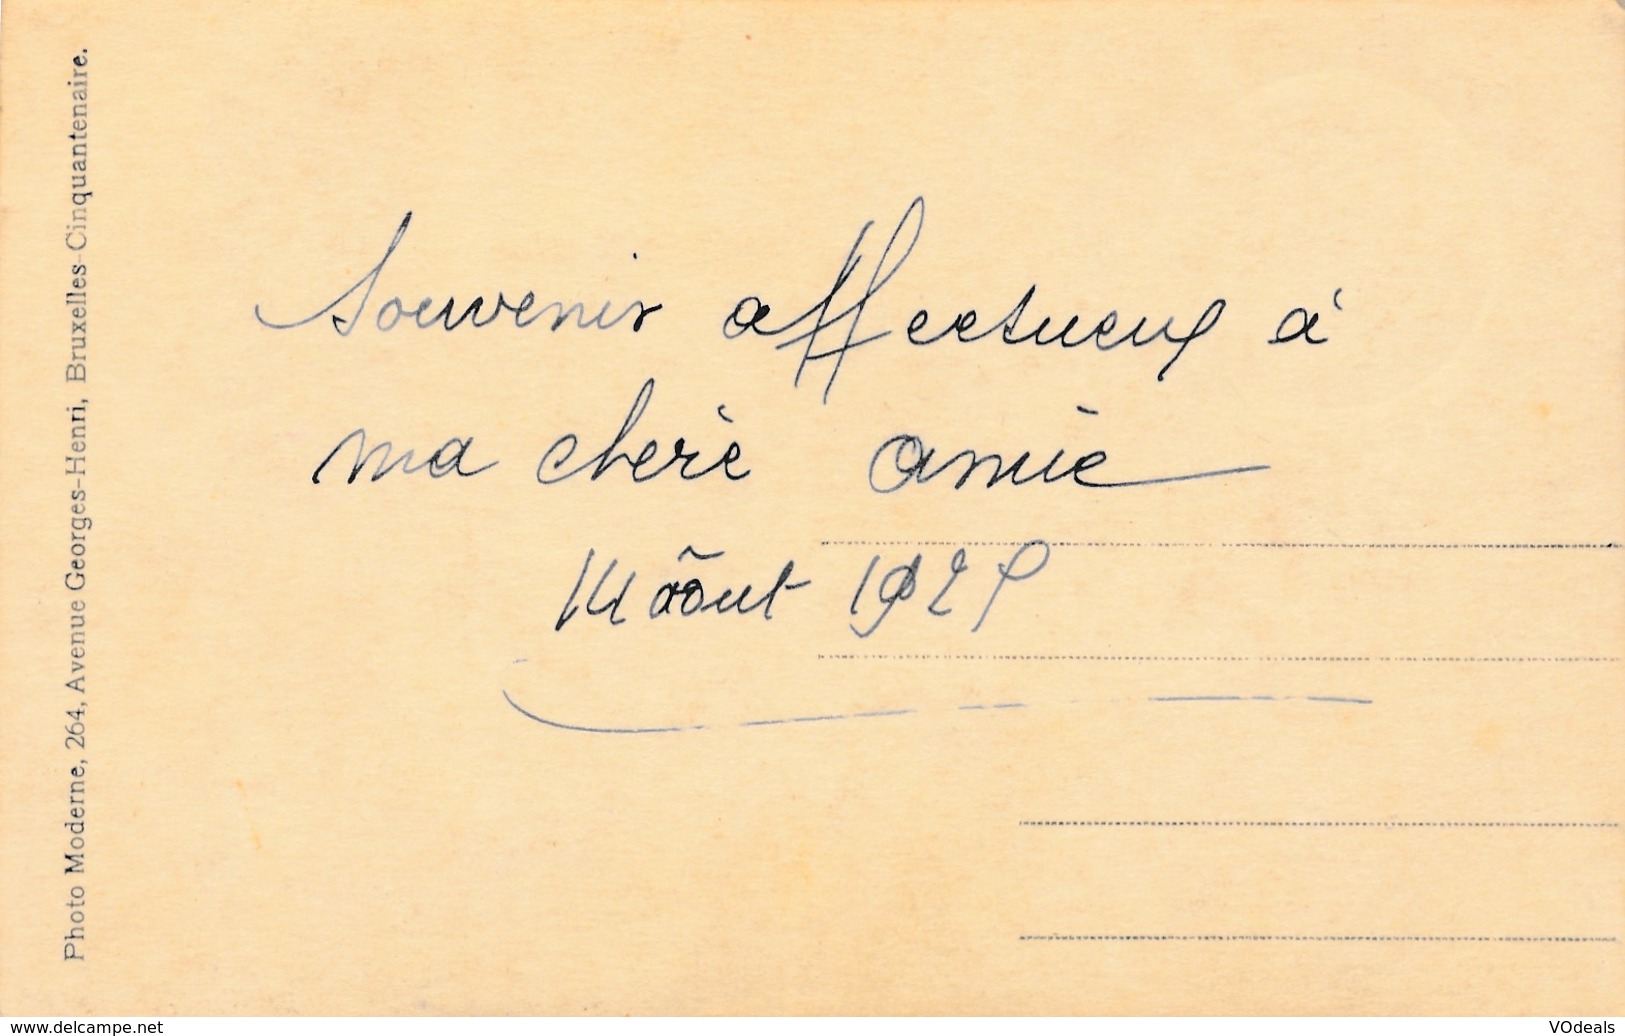 Photo Moderne, 264, Avenue Georges-Henri, Bruxelles-Cinquantenaire.
Souvenir affectueux à
ma cherè amie
14 aôut
www.delcampe.net
VOdeals